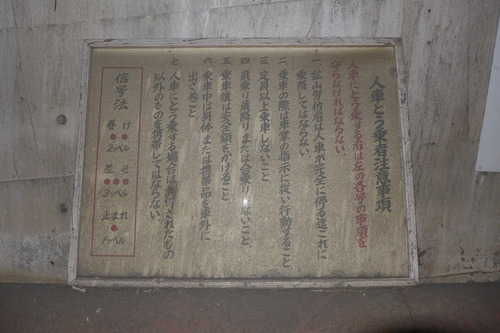 人車とう乗者注意事項
人車にとう乗する者は左の各号の事項を
守らなければならない。
一 鉱山労働者は人車が完全に停る迄これに
乗降してはならない
二 乗車の際は車掌の指示に従い行動すること
三 定員以上乗車しないこと
四 飛乗り飛降りまたは台乗りしないこと
五 乗車後は安全鎖をかけること
六 乗車中は身体または携帯品を車外に
出さぬこと
七 人車にとう乗する場合は許可されたもの
以外のものを携帯してはならない。
信号法
巻け
2ベル
差せ
3ベル
止まれ
1ベル